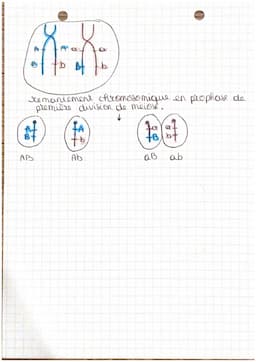 A A a a
B b B b
remaniement chromosomique en prophase de
première division de meiose.
A A a a
B b B b
AB Ab aB ab